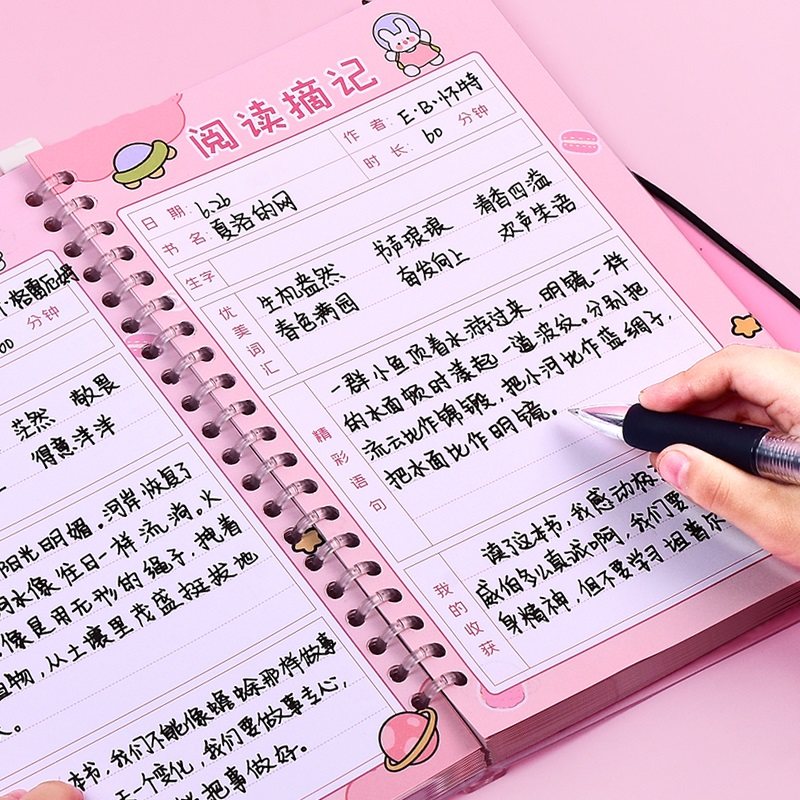 格雷厄姆
00 分钟
茫然 敬畏
得意洋洋
阳光明媚。河岸恢复了
水像往日一样流淌。火
像是用无形的绳子，拽着
植物，从土壤里茂盛挺拔地
本书，我们不能像蟾蜍那样做事
一个变化，我们要做事专心，
把事做好。
阅读摘记
作者：E·B·怀特
时长：60 分钟
日期：6.26
书名：夏洛的网
生字
优美词汇
生机盎然 书声琅琅 清香四溢
春色满园 奋发向上 欢声笑语
精彩语句
一群小鱼顶着水游过来，明镜一样
的水面顿时漾起一道波纹。分别把
流云比作锦缎，把小河比作蓝绸子，
把水面比作明镜。
我的收获
读了这本书，我感动极
威伯多么真诚啊，我们要
身精神，但不要学习坦普尔